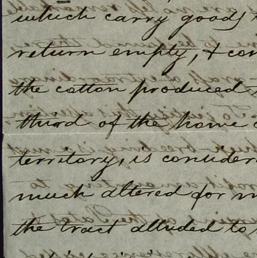 which carry goods
return empty, & con
the cotton produced
third of the home
territory, is consider
much altered for
the tract alluded to